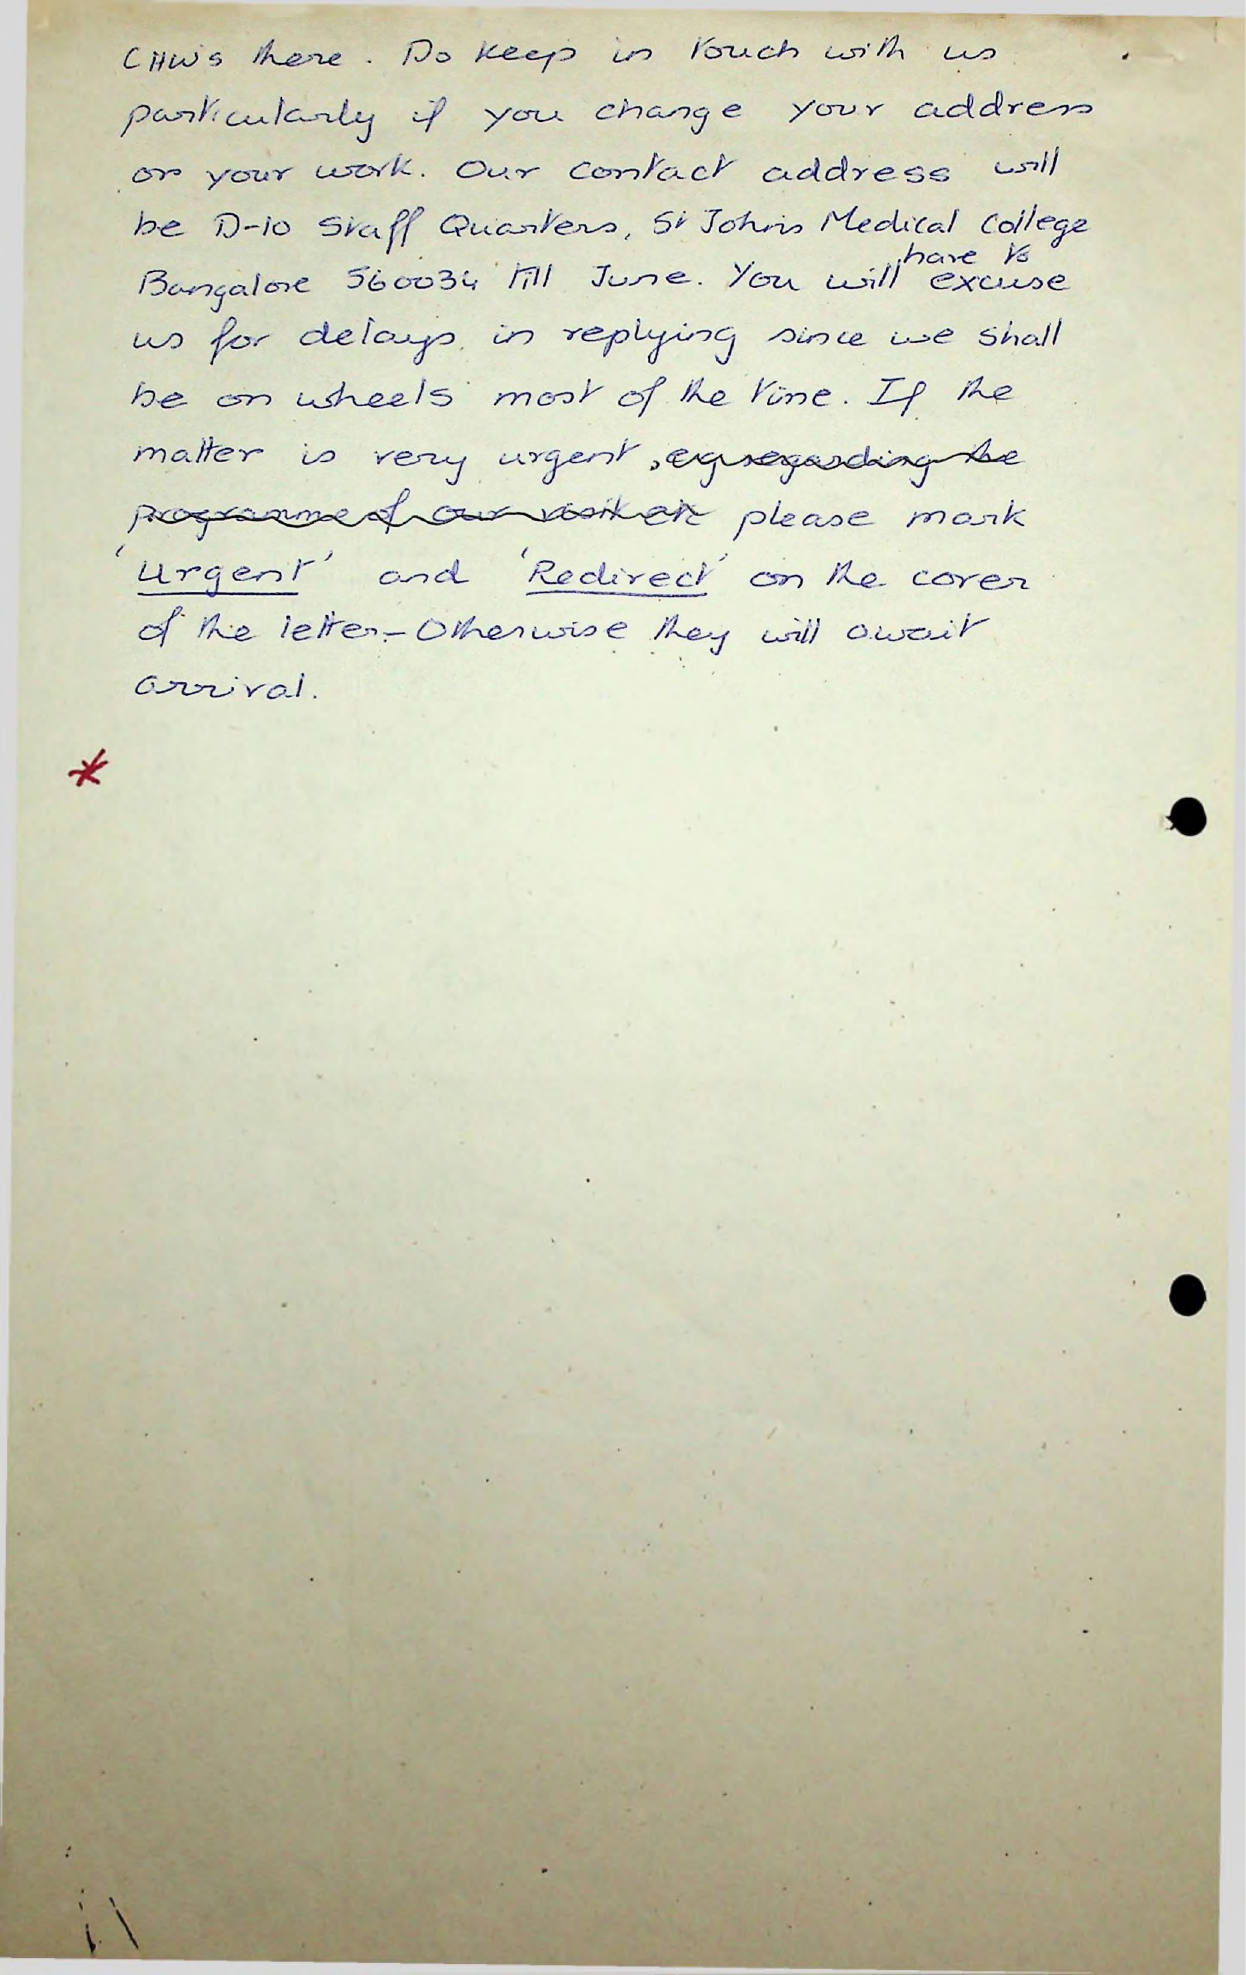 CHWs there. Do keep in touch with us
particularly if you change your address
or your work. Our contact address will
be D-10 Staff Quarters, St Johns Medical College
Bangalore 560034 till June. You will have to excuse
us for delays in replying since we shall
be on wheels most of the time. If the
matter is very urgent, eg regarding the
programme of our visit etc please mark
'Urgent' and 'Redirect' on the cover
of the letter - Otherwise they will await
arrival.
*